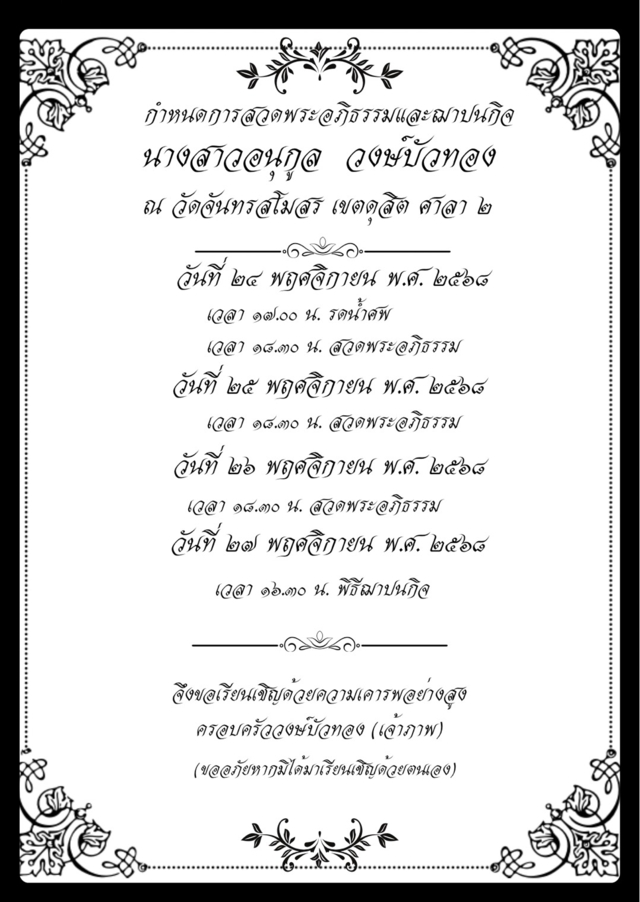 กำหนดการสวดพระอภิธรรมและฌาปนกิจ
นางสาวอนุกูล วงษ์บัวทอง
ณ วัดจันทรสโมสร เขตดุสิต ศาลา ๒
วันที่ ๒๔ พฤศจิกายน พ.ศ. ๒๕๖๘
เวลา ๑๗.๐๐ น. รดน้ำศพ
เวลา ๑๘.๓๐ น. สวดพระอภิธรรม
วันที่ ๒๕ พฤศจิกายน พ.ศ. ๒๕๖๘
เวลา ๑๘.๓๐ น. สวดพระอภิธรรม
วันที่ ๒๖ พฤศจิกายน พ.ศ. ๒๕๖๘
เวลา ๑๘.๓๐ น. สวดพระอภิธรรม
วันที่ ๒๗ พฤศจิกายน พ.ศ. ๒๕๖๘
เวลา ๑๖.๓๐ น. พิธีฌาปนกิจ
จึงขอเรียนเชิญด้วยความเคารพอย่างสูง
ครอบครัววงษ์บัวทอง (เจ้าภาพ)
(ขออภัยหากมิได้มาเรียนเชิญด้วยตนเอง)